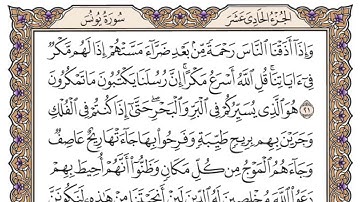 الجزء الحادي عشر سورة يونس
وَإِذَآ أَذَقْنَا ٱلنَّاسَ رَحْمَةً مِّنۢ بَعْدِ ضَرَّآءَ مَسَّتْهُمْ إِذَا لَهُم مَّكْرٌ
فِىٓ ءَايَاتِنَا ۚ قُلِ ٱللَّهُ أَسْرَعُ مَكْرًا ۚ إِنَّ رُسُلَنَا يَكْتُبُونَ مَا تَمْكُرُونَ
٢١ هُوَ ٱلَّذِى يُسَيِّرُكُمْ فِى ٱلْبَرِّ وَٱلْبَحْرِ ۖ حَتَّىٰٓ إِذَا كُنتُمْ فِى ٱلْفُلْكِ
وَجَرَيْنَ بِهِم بِرِيحٍ طَيِّبَةٍ وَفَرِحُوا۟ بِهَا جَآءَتْهَا رِيحٌ عَاصِفٌ
وَجَآءَهُمُ ٱلْمَوْجُ مِن كُلِّ مَكَانٍ وَظَنُّوٓا۟ أَنَّهُمْ أُحِيطَ بِهِمْ ۙ
دَعَوُا۟ ٱللَّهَ مُخْلِصِينَ لَهُ ٱلدِّينَ لَئِنْ أَنجَيْتَنَا مِنْ هَٰذِهِۦ لَنَكُونَنَّ